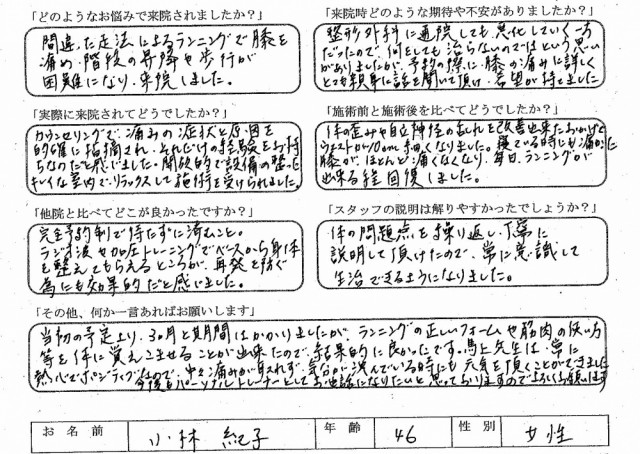 「どのようなお悩みで来院されましたか？」
間違った走法によるランニングで膝を
痛め、階段の昇降や歩行が
困難になり、来院しました。
「来院時どのような期待や不安がありましたか？」
整形外科に通院しても悪化していく一方
だったので、何をしても治らないのではという思い
がありましたが、予約の際に膝の痛みに詳しく
とても親身に話を聞いて頂け、希望が持てました
「実際に来院されてどうでしたか？」
カウンセリングで、痛みの症状と原因を
的確に指摘され、それだけの経験をお持
ちなのだと感じました。開放的で設備の整った
キレイな室内で、リラックスして施術を受けられました。
「施術前と施術後を比べてどうでしたか？」
体の歪みや自立神経の乱れを改善出来たおかげで
ウエストが10cm細くなりました。寝ている時にも痛かった
膝が、ほとんど痛くなくなり、毎日、ランニングが
出来る程回復しました。
「他院と比べてどこが良かったですか？」
完全予約制で待たずに済むこと。
ラジオ波や加圧トレーニングでベースから身体
を整えてもらえるところが、再発を防ぐ
為にも効果的だと感じました。
「スタッフの説明は解りやすかったでしょうか？」
体の問題点を繰り返し、丁寧に
説明して頂けたので、常に意識して
生活できるようになりました。
「その他、何か一言あればお願いします」
当初の予定より、3ヶ月と期間はかかりましたが、ランニングの正しいフォームや筋肉の使い方
等を体に覚えこませることが出来たので、結果的に良かったです。馬上先生は、常に
熱心でポジティブなので、中々痛みが取れず、気分が沈んでいる時にも元気を頂くことができました
今後もパーソナルトレーナーとしてお世話になりたいと思っておりますのでよろしくお願いします
お名前 小林 紀子 年齢 46 性別 女性